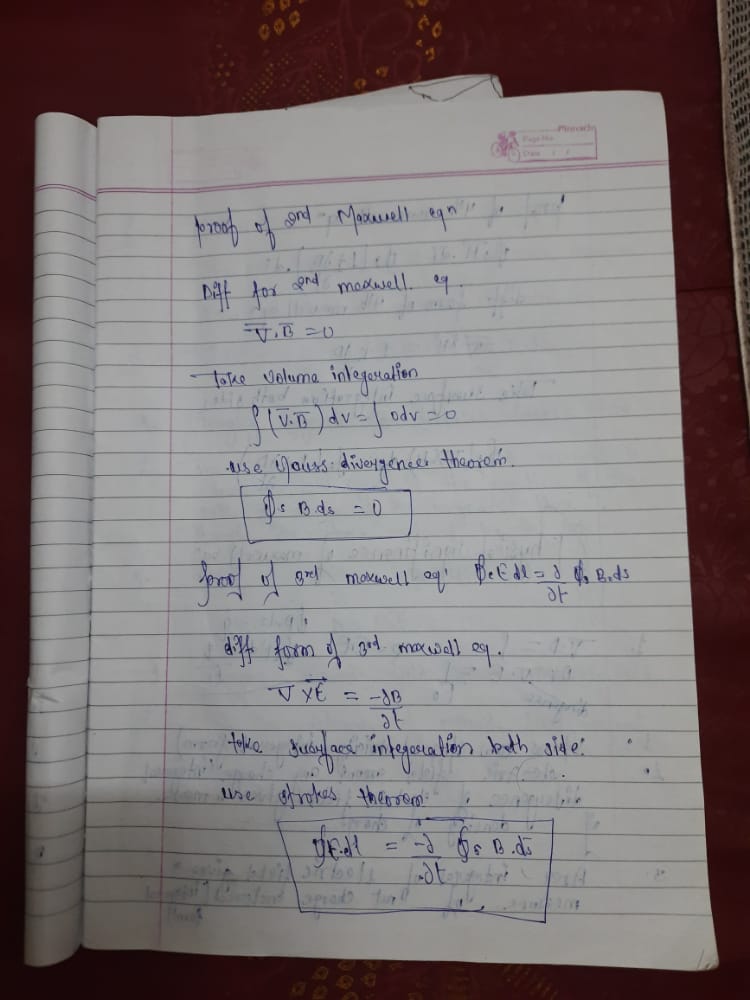 Page No.
Date : :
proof of 2nd Maxwell eqn
Diff for 2nd maxwell eq.
∇.B = 0
Take volume integeration
∫(∇.B)dv = ∫0dv = 0
use Gauss divergence theorem.
∮s B.ds = 0
proof of 3rd maxwell eq: ∮c E dl = ∂/∂t ∮s B.ds
diff form of 3rd maxwell eq.
∇×E = -∂B/∂t
take surface integeration both side:
use strokes theorem
∮E.dl = -∂/∂t ∮s B.ds